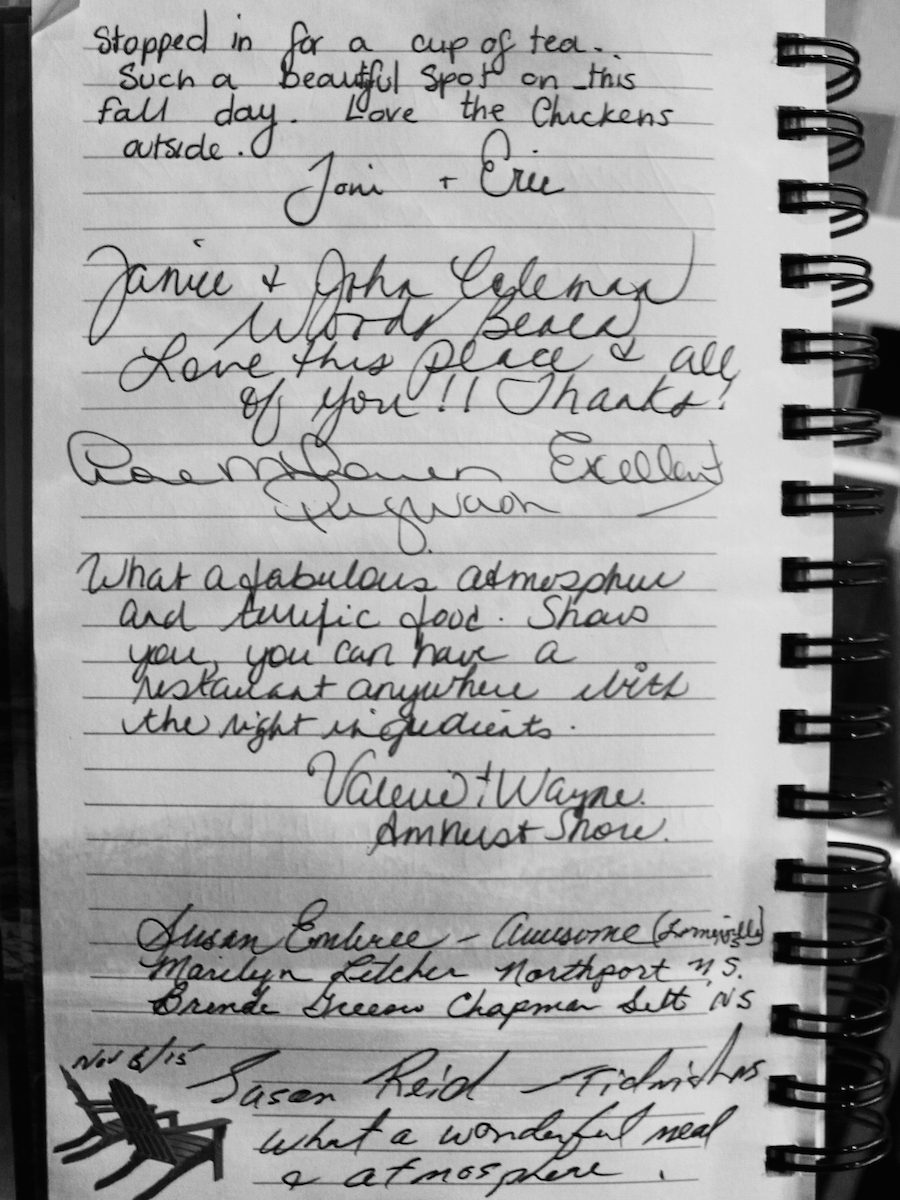 Stopped in for a cup of tea..
Such a beautiful spot on this
fall day. Love the Chickens
outside.
Joni + Eric
Janice & John Coleman
Woods Beach
Love this place & all
of you!! Thanks!
Rose Excellent
What a fabulous atmosphere
and terrific food. Shows
you, you can have a
restaurant anywhere with
the right ingredients.
Valerie + Wayne.
Amherst Shore.
Susan Embree - Awesome
Marilyn Letcher Northport N.S.
Brenda Chapman Sett NS
Nov 6/15
Susan Reid - Tidnish NS
what a wonderful meal
& atmosphere.